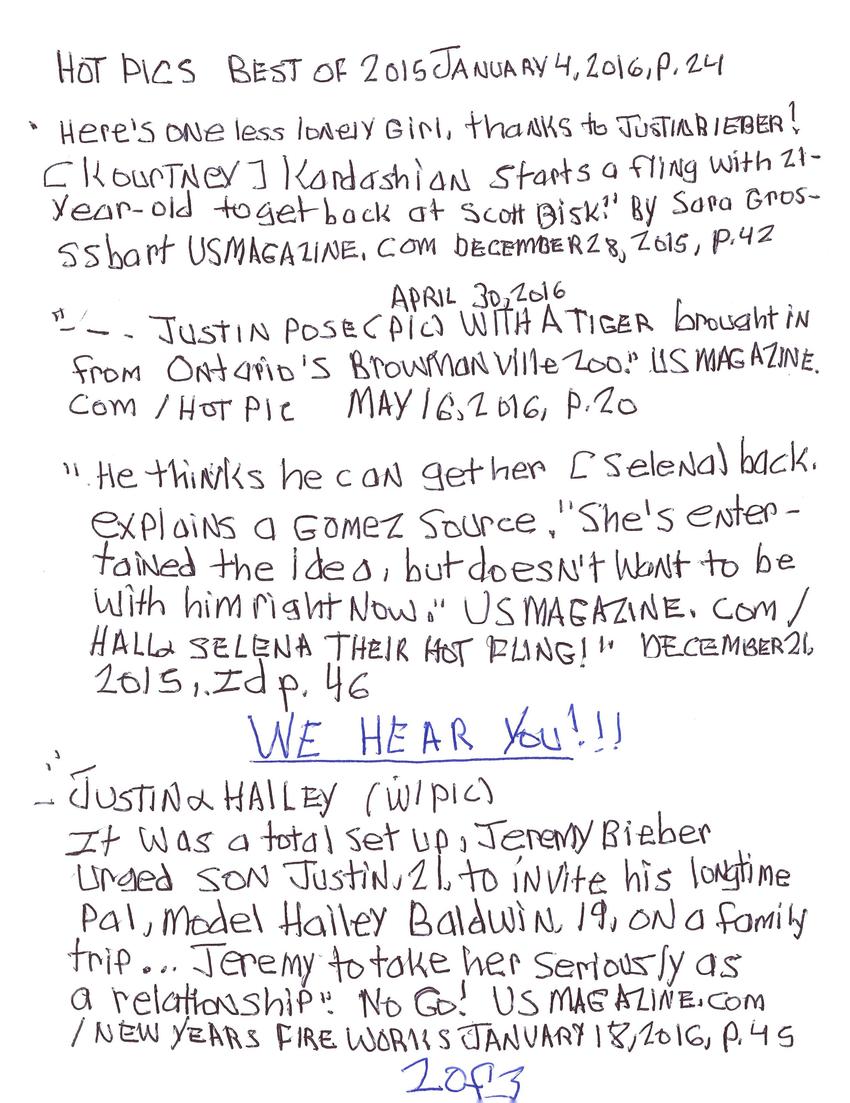 HOT PICS BEST OF 2015 JANUARY 4, 2016, P. 24
" Here's one less lonely Girl, thanks to JUSTIN BIEBER!
[KOURTNEY] Kardashian starts a fling with 21-
year-old to get back at Scott Disk." By Sara Gros-
ssbart USMAGAZINE. COM DECEMBER 28, 2015, P. 42
APRIL 30, 2016
"-- . JUSTIN POSE (PIC) WITH A TIGER brought in
from Ontario's Browmanville Zoo." US MAGAZINE.
Com / HOT PIC MAY 16, 2016, P. 20
" He thinks he can get her [Selena] back.
explains a GOMEZ Source, "She's enter-
tained the idea, but doesn't want to be
with him right now." US MAGAZINE. Com /
HALL & SELENA THEIR HOT FLING!" DECEMBER 21,
2015, Id p. 46
WE HEAR YOU!!!
"- JUSTIN & HAILEY (W/PIC)
It was a total set up, Jeremy Bieber
Urged SON Justin, 21, to invite his longtime
Pal, Model Hailey Baldwin, 19, on a family
trip... Jeremy to take her seriously as
a relationship". No Go! US MAGAZINE.com
/ NEW YEARS FIRE WORKS JANUARY 18, 2016, P. 45
2 of 3